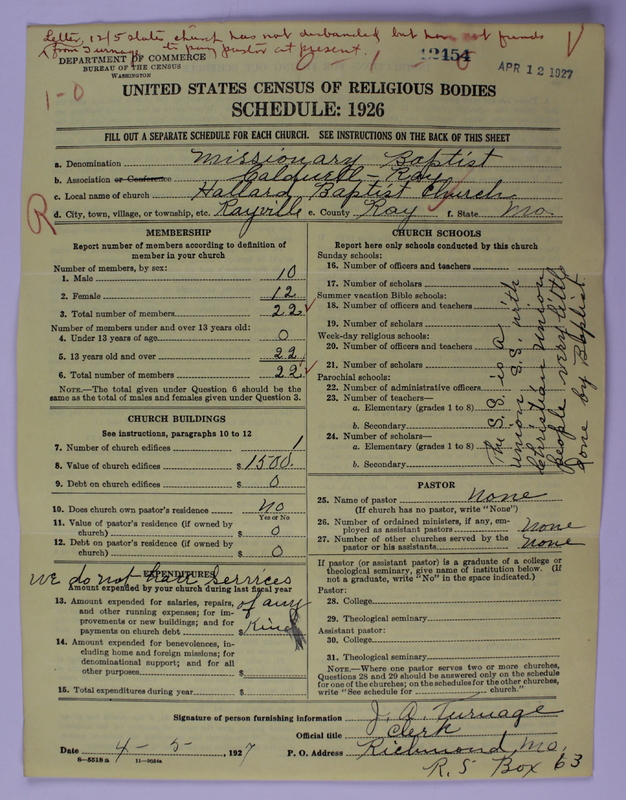 Letter, 12/5 states church has not disbanded but have not funds
from Turnage to pay pastor at present.
DEPARTMENT OF COMMERCE
BUREAU OF THE CENSUS
WASHINGTON
12454
APR 12 1927
1-0
UNITED STATES CENSUS OF RELIGIOUS BODIES
SCHEDULE: 1926
FILL OUT A SEPARATE SCHEDULE FOR EACH CHURCH. SEE INSTRUCTIONS ON THE BACK OF THIS SHEET
a. Denomination Missionary Baptist
b. Association or Conference Caldwell-Ray
c. Local name of church Hallard Baptist Church
d. City, town, village, or township, etc. Rayville e. County Ray f. State Mo.
R
MEMBERSHIP
Report number of members according to definition of
member in your church
Number of members, by sex:
1. Male 10
2. Female 12
3. Total number of members 22
Number of members under and over 13 years old:
4. Under 13 years of age 0
5. 13 years old and over 22
6. Total number of members 22
NOTE.—The total given under Question 6 should be the
same as the total of males and females given under Question 3.
CHURCH BUILDINGS
See instructions, paragraphs 10 to 12
7. Number of church edifices 1
8. Value of church edifices $1500.
9. Debt on church edifices $ 0
10. Does church own pastor's residence? no
Yes or No
11. Value of pastor's residence (if owned by
church) $ 0
12. Debt on pastor's residence (if owned by
church) $ 0
EXPENDITURES
we do not have services
Amount expended by your church during last fiscal year
13. Amount expended for salaries, repairs, of any
and other running expenses; for im-
provements or new buildings; and for
payments on church debt $ Kind
14. Amount expended for benevolences, in-
cluding home and foreign missions; for
denominational support; and for all
other purposes $
15. Total expenditures during year $
CHURCH SCHOOLS
Report here only schools conducted by this church
Sunday schools:
16. Number of officers and teachers
17. Number of scholars
Summer vacation Bible schools:
18. Number of officers and teachers
19. Number of scholars
Week-day religious schools:
20. Number of officers and teachers
21. Number of scholars
Parochial schools:
22. Number of administrative officers
23. Number of teachers—
a. Elementary (grades 1 to 8)
b. Secondary
24. Number of scholars—
a. Elementary (grades 1 to 8)
b. Secondary
The S.S. is a
union S.S. with
Christian Union
people very little
done by Baptist
PASTOR
25. Name of pastor none
(If church has no pastor, write "None")
26. Number of ordained ministers, if any, em-
ployed as assistant pastors none
27. Number of other churches served by the
pastor or his assistants none
If pastor (or assistant pastor) is a graduate of a college or
theological seminary, give name of institution below. (If
not a graduate, write "No" in the space indicated.)
Pastor:
28. College
29. Theological seminary
Assistant pastor:
30. College
31. Theological seminary
NOTE.—Where one pastor serves two or more churches,
Questions 28 and 29 should be answered only on the schedule
for one of the churches; on the schedules for the other churches,
write "See schedule for church."
Signature of person furnishing information J. A. Turnage
Official title Clerk
Date 4-5, 1927 P. O. Address Richmond, Mo.
8-5518 a
R. 5 Box 63